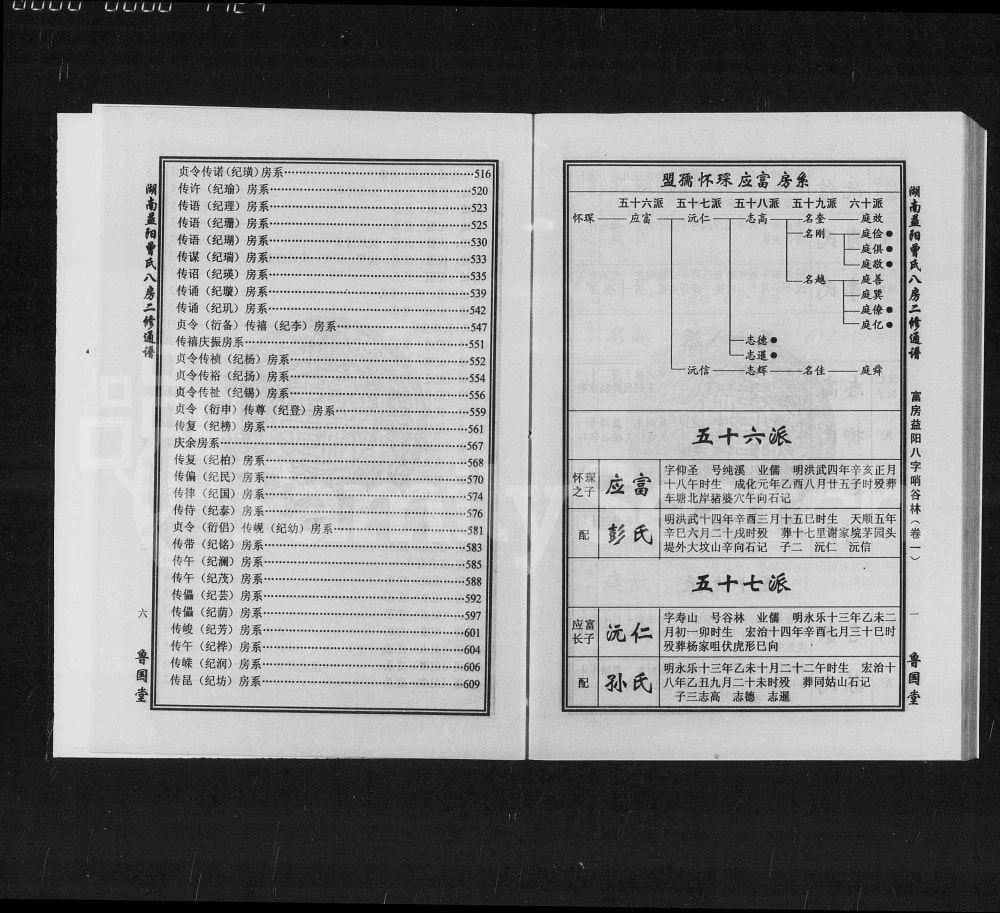 湖南益阳曾氏八房二修通谱
六
鲁国堂
贞令传诺(纪璜)房系……516
传许(纪瑜)房系……520
传语(纪理)房系……523
传语(纪珊)房系……525
传语(纪瑚)房系……530
传谋(纪瑞)房系……533
传诏(纪瑛)房系……535
传诵(纪璇)房系……539
传诵(纪玑)房系……542
贞令(衍备)传禧(纪李)房系……547
传禧庆振房系……551
贞令传桢(纪杨)房系……552
贞令传裕(纪扬)房系……554
贞令传祉(纪锡)房系……556
贞令(衍申)传尊(纪登)房系……559
传复(纪榜)房系……561
庆余房系……567
传复(纪柏)房系……568
传偏(纪民)房系……570
传律(纪国)房系……574
传侍(纪泰)房系……576
贞令(衍侣)传岘(纪幼)房系……581
传带(纪铭)房系……583
传午(纪澜)房系……585
传午(纪茂)房系……588
传儡(纪芸)房系……592
传儡(纪荫)房系……597
传峻(纪芳)房系……601
传午(纪桦)房系……604
传嵘(纪润)房系……606
传昆(纪坊)房系……609
盟孺怀琛应富房系
五十六派 五十七派 五十八派 五十九派 六十派
怀琛 应富 沅仁 志高 名奎 庭效
名刚 庭俭●
庭俱●
庭敬●
名越 庭善
庭巽
庭僚●
庭亿●
志德●
志暹●
沅信 志辉 名佳 庭舜
五十六派
怀琛之子
应富
字仰圣 号纯溪 业儒 明洪武四年辛亥正月
十八午时生 成化元年乙酉八月廿五子时殁葬
车塘北岸猪婆穴午向石记
配
彭氏
明洪武十四年辛酉三月十五巳时生 天顺五年
辛巳六月二十戌时殁 葬十七里谢家垸茅园头
堤外大坟山辛向石记 子二 沅仁 沅信
五十七派
应富长子
沅仁
字寿山 号谷林 业儒 明永乐十三年乙未二
月初一卯时生 宏治十四年辛酉七月三十巳时
殁葬杨家咀伏虎形巳向
配
孙氏
明永乐十三年乙未十月二十二午时生 宏治十
八年乙丑九月二十未时殁 葬同姑山石记
子三志高 志德 志暹
湖南益阳曾氏八房二修通谱
富房益阳八字哨谷林(卷一)
一
鲁国堂